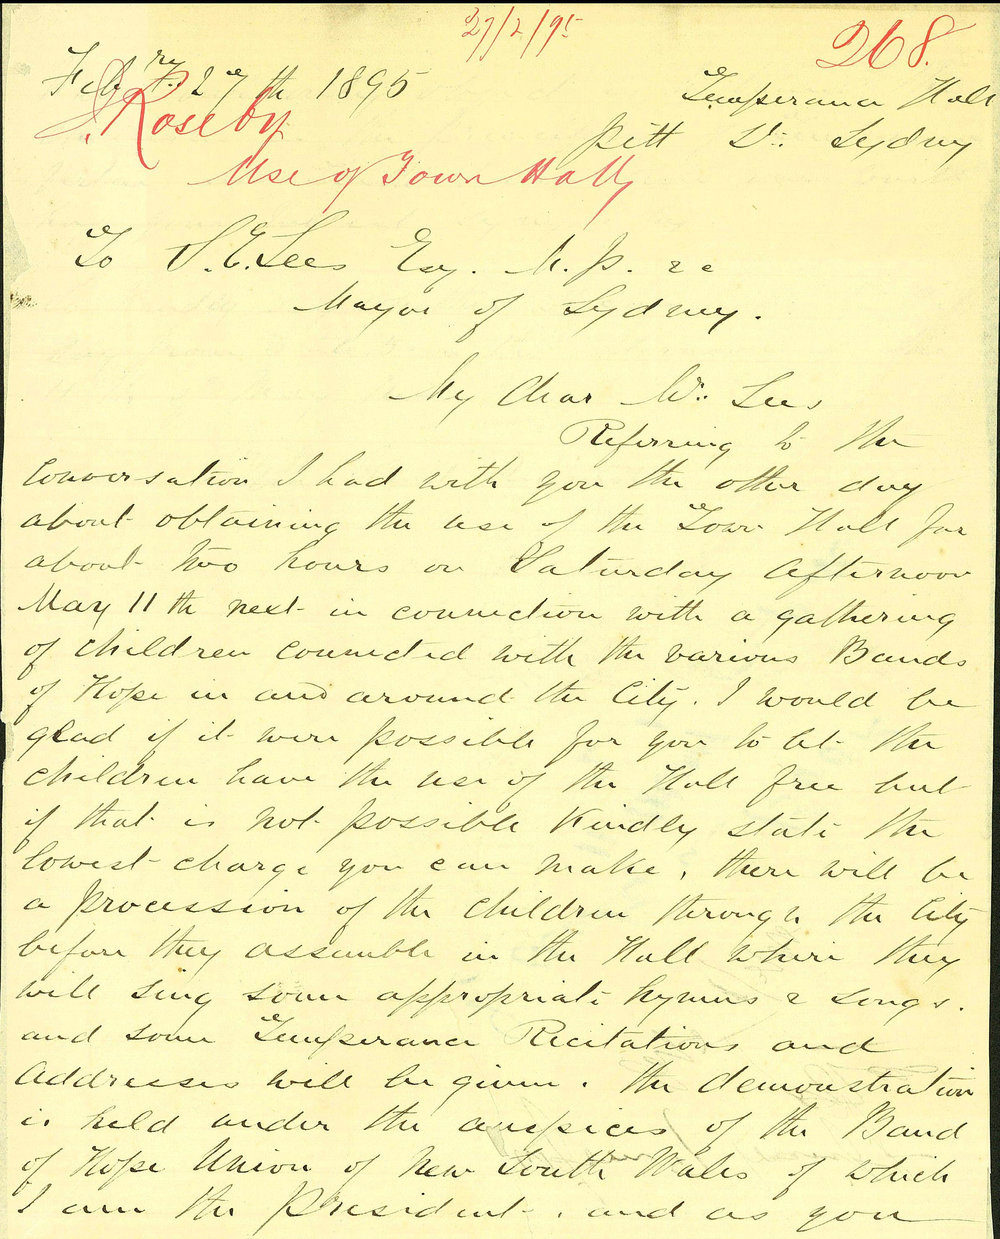 27/2/95
268.
Febry. 27th 1895
Temperance Hall
J. Roseby
Pitt St: Sydney
Use of Town Hall
To S. E. Lees Esq. M. P. &c
Mayor of Sydney.
My Dear Mr: Lees
Referring to the
conversation I had with you the other day
about obtaining the use of the Town Hall for
about two hours on Saturday afternoon
May 11th next in connection with a gathering
of children connected with the various Bands
of Hope in and around the City. I would be
glad if it were possible for you to let the
children have the use of the Hall free but
if that is not possible kindly state the
lowest charge you can make, there will be
a procession of the children through the City
before they assemble in the Hall where they
will sing some appropriate hymns & songs.
and some Temperance Recitations and
addresses will be given. the demonstration
is held under the auspices of the Band
of Hope Union of New South Wales of which
I am the President. and as you